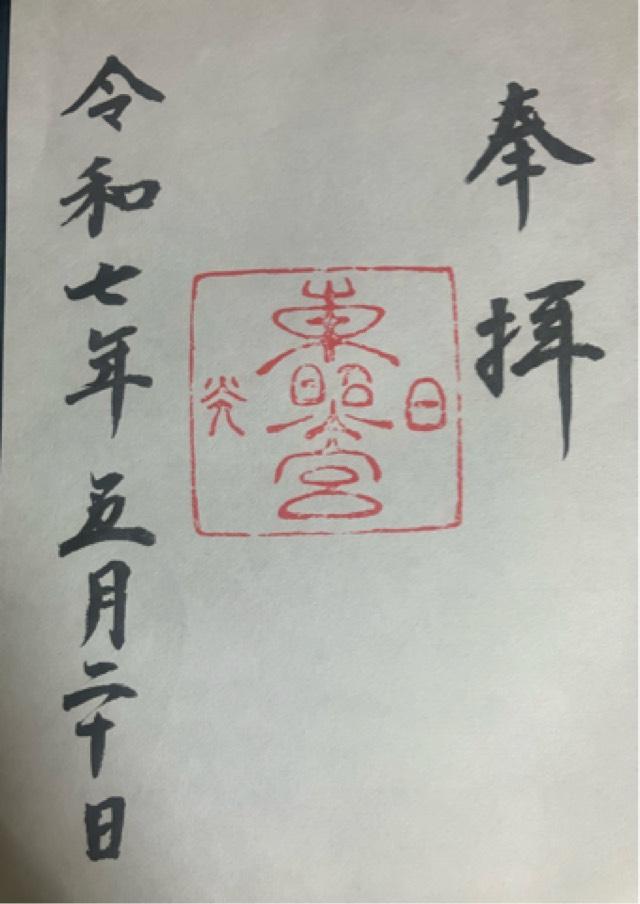 奉拝
日光
東照宮
令和七年五月二十日